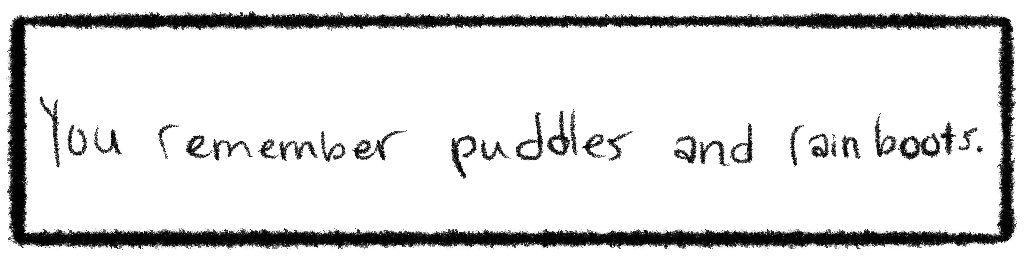 You remember puddles and rainboots.